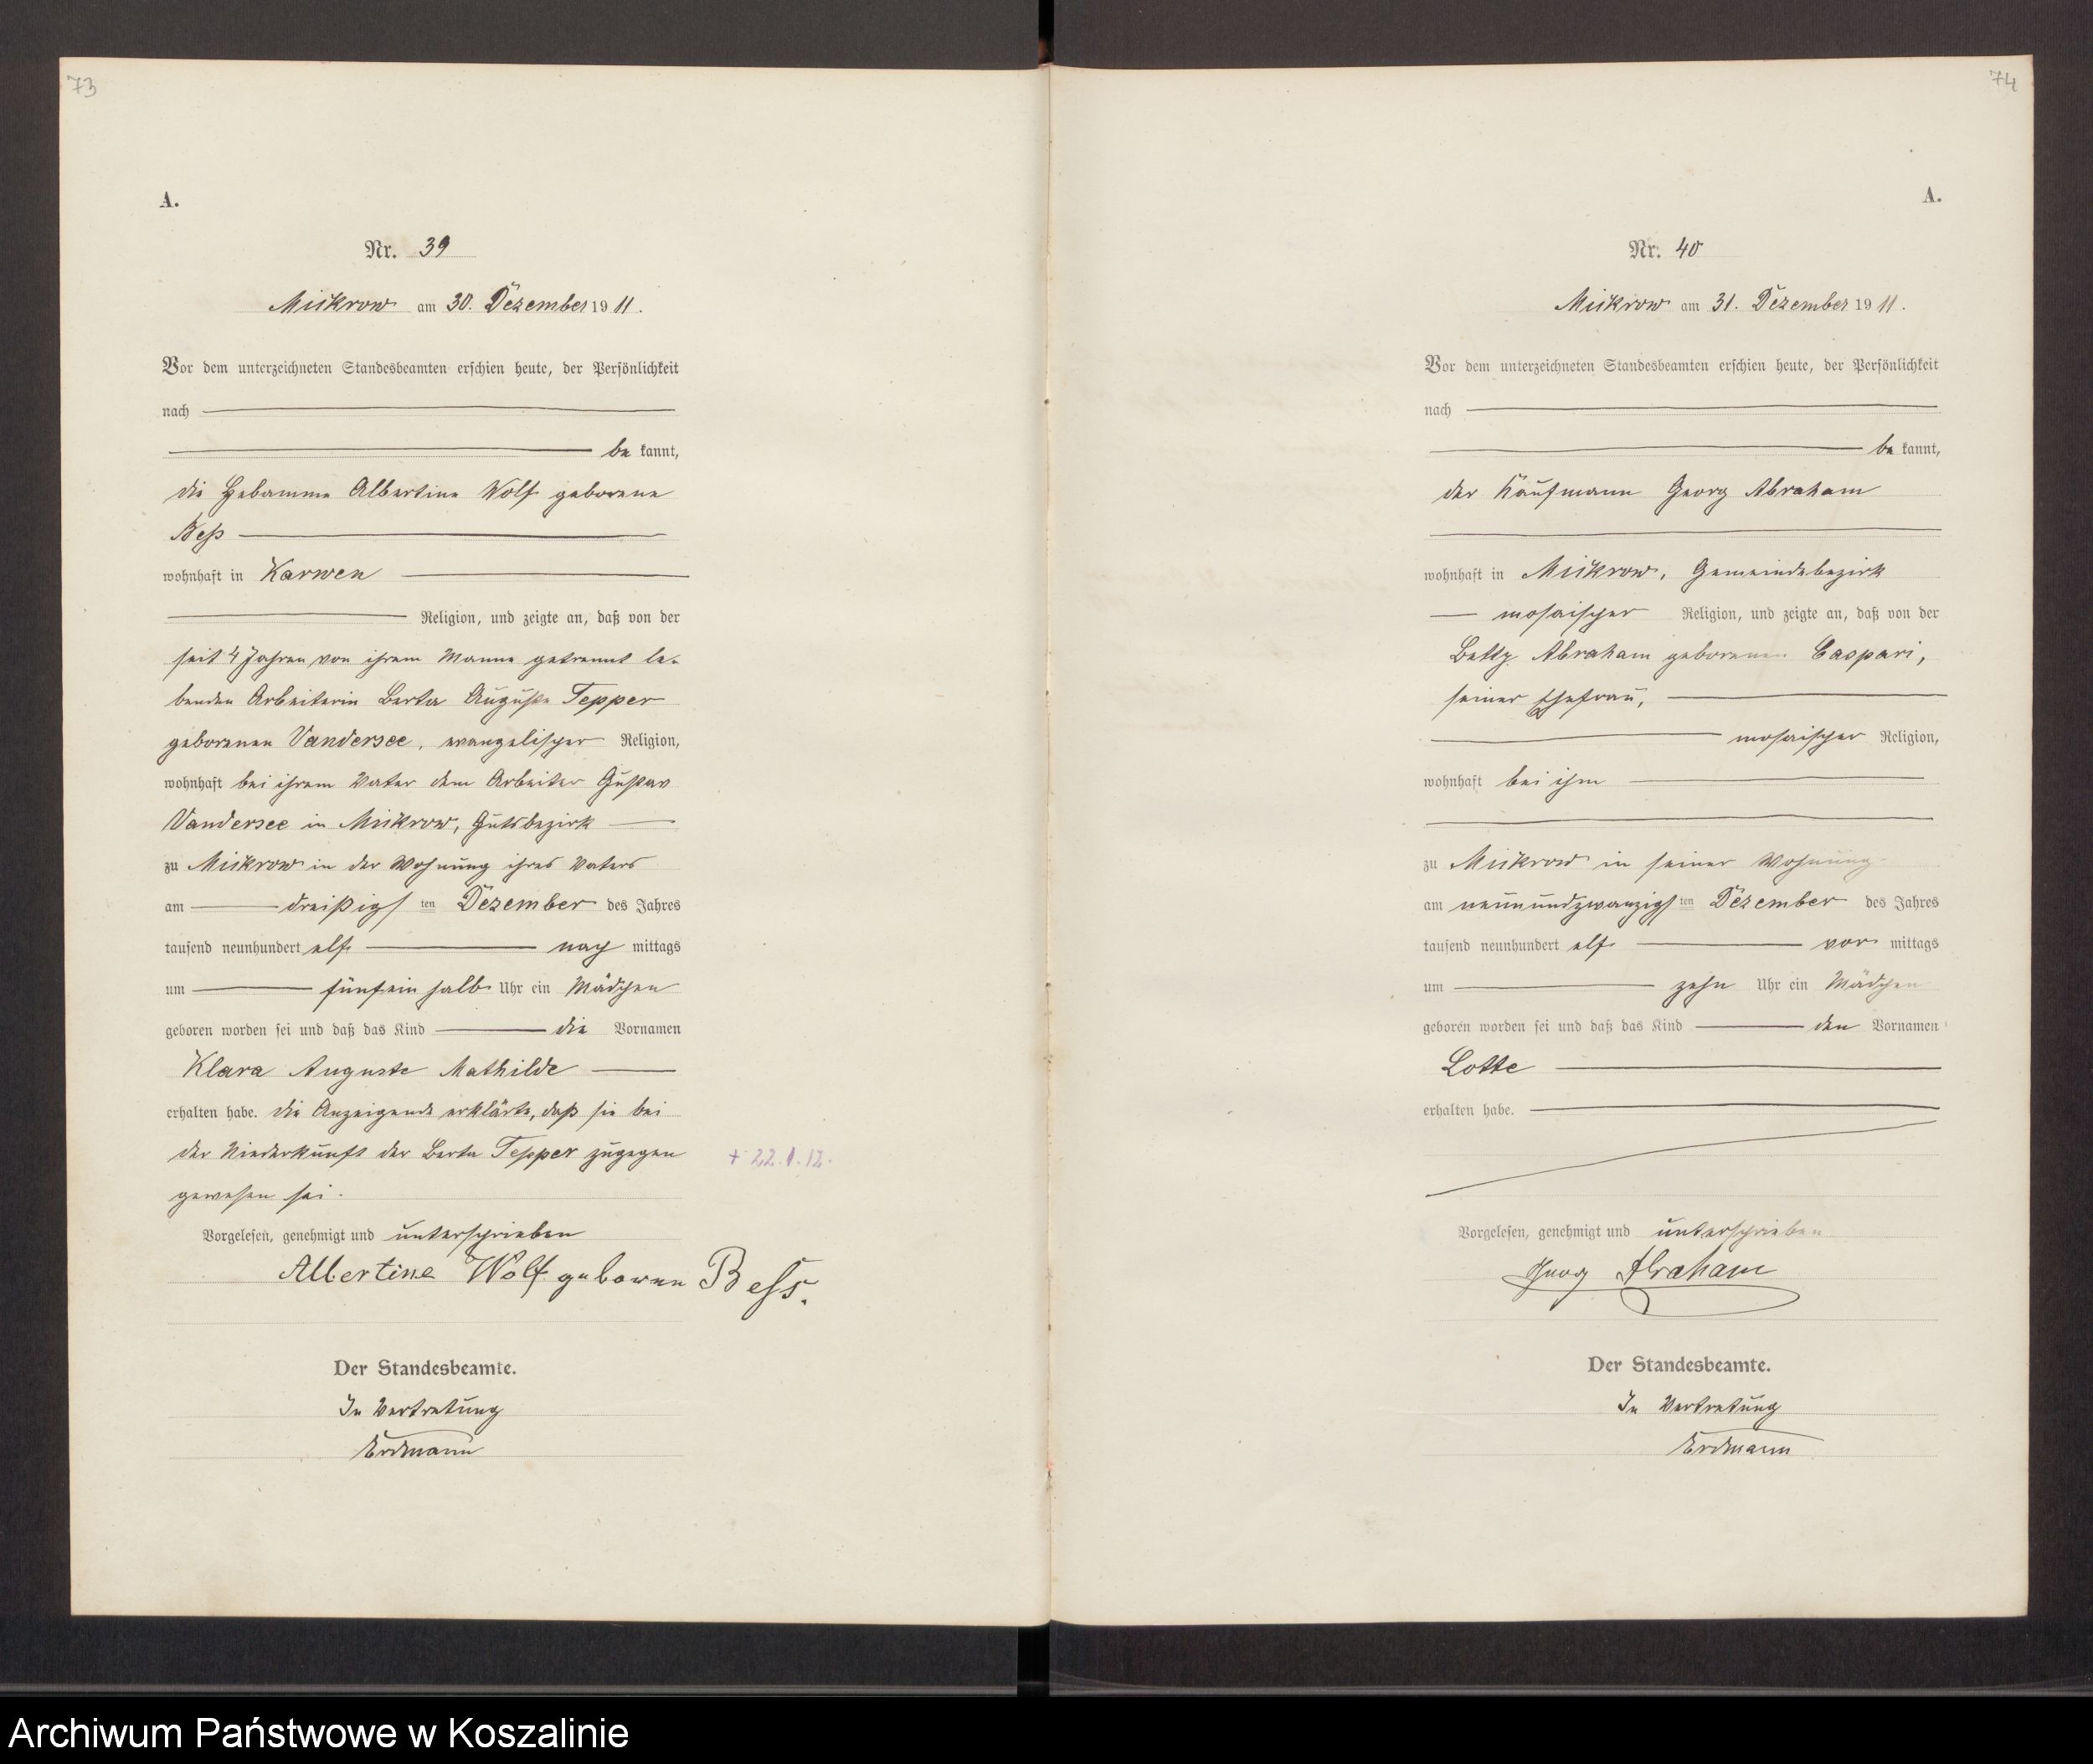 73
A.
Nr. 39
Mickrow am 30. Dezember 1911.
Vor dem unterzeichneten Standesbeamten erschien heute, der Persönlichkeit
nach
be kannt,
die Hebamme Albertine Wolf geborene
Beß
wohnhaft in Karwen
Religion, und zeigte an, daß von der
seit 4 Jahren von ihrem Manne getrennt le-
benden Arbeiterin Berta Auguste Tepper
geborenen Vandersee, evangelischer Religion,
wohnhaft bei ihrem Vater dem Arbeiter Gustav
Vandersee in Mickrow, Gutsbezirk
zu Mickrow in der Wohnung ihres Vaters
am dreißigsten Dezember des Jahres
tausend neunhundert elf nach mittags
um fünfeinhalb Uhr ein Mädchen
geboren worden sei und daß das Kind die Vornamen
Klara Auguste Mathilde
erhalten habe. die Anzeigende erklärte, daß sie bei
der Niederkunft der Berta Tepper zugegen
+ 22.1.12.
gewesen sei.
Vorgelesen, genehmigt und unterschrieben
Albertine Wolf geborene Bess.
Der Standesbeamte.
In Vertretung
Erdmann
74
A.
Nr. 40
Mickrow am 31. Dezember 1911.
Vor dem unterzeichneten Standesbeamten erschien heute, der Persönlichkeit
nach
be kannt,
der Kaufmann Georg Abraham
wohnhaft in Mickrow, Gemeindebezirk
mosaischer Religion, und zeigte an, daß von der
Betty Abraham geborenen Caspari,
seiner Ehefrau,
mosaischer Religion,
wohnhaft bei ihm
zu Mickrow in seiner Wohnung
am neunundzwanzigsten Dezember des Jahres
tausend neunhundert elf vor mittags
um zehn Uhr ein Mädchen
geboren worden sei und daß das Kind den Vornamen
Lotte
erhalten habe.
Vorgelesen, genehmigt und unterschrieben
Georg Abraham
Der Standesbeamte.
In Vertretung
Erdmann
Archiwum Państwowe w Koszalinie